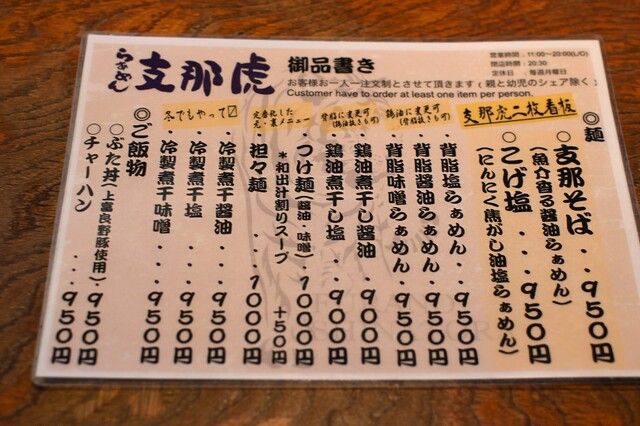 らぁめん 支那虎
御品書き
営業時間：11:00～20:00(L/O)
閉店時間：20:30
定休日：毎週月曜日
お客様お一人一注文制とさせて頂きます(親と幼児のシェア除く)
Customer have to order at least one item per person.
◎麺
支那虎二枚看板
○支那そば...950円
(魚介香る醤油らぁめん)
○こげ塩...950円
(にんにく焦がし油塩らぁめん)
鶏油に変更可
(背脂抜きも可)
・背脂塩らぁめん..950円
・背脂醤油らぁめん.950円
・背脂味噌らぁめん.950円
背脂に変更可
(鶏油抜きも可)
・鶏油煮干し醤油.900円
・鶏油煮干し塩..900円
定番化した
元・裏メニュー
・つけ麺(醤油・味噌).1000円
*和出汁割りスープ +50円
・担々麺...1000円
冬でもやってマ
・冷製煮干醤油..950円
・冷製煮干塩...950円
・冷製煮干味噌..950円
◎ご飯物
○ぶた丼(上富良野豚使用)..950円
○チャーハン...950円